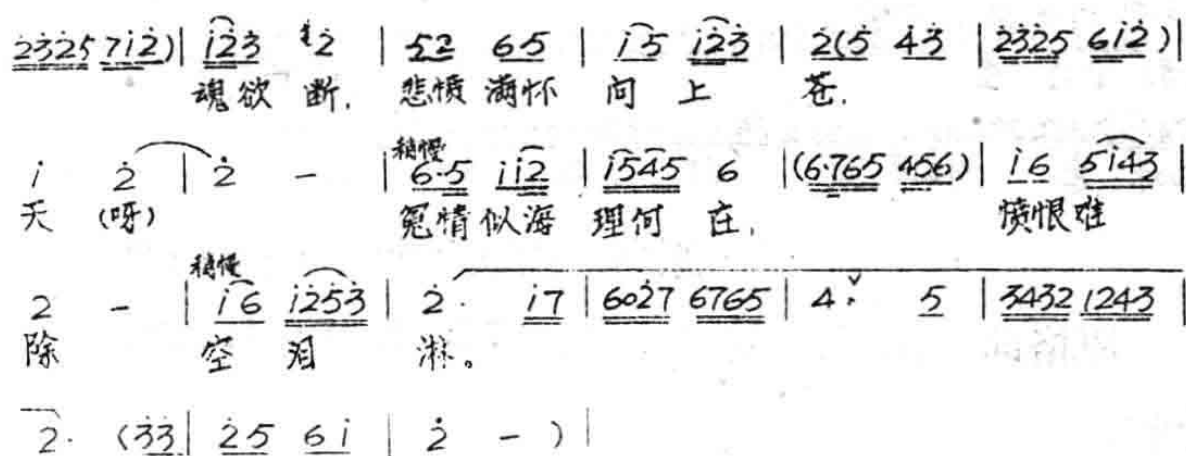 2325 712)| 123 2 | 52 65 | i5 i23 | 2(5 43 | 2325 6i2 )|
魂欲 断. 悲愤 满怀 问 上 苍.
稍慢
i 2 | 2 - | 6·5 ii2 | i545 6 |(6·765 456)| i6 5i43 |
天 (呀) 冤情似海 理何 在, 愤恨难
稍慢
2 - | i6 i253 | 2· i7 | 6027 6765 | 4· 5 | 3432 1243 |
除 空 泪 淋。
2· (33| 25 6i | 2 - ) |